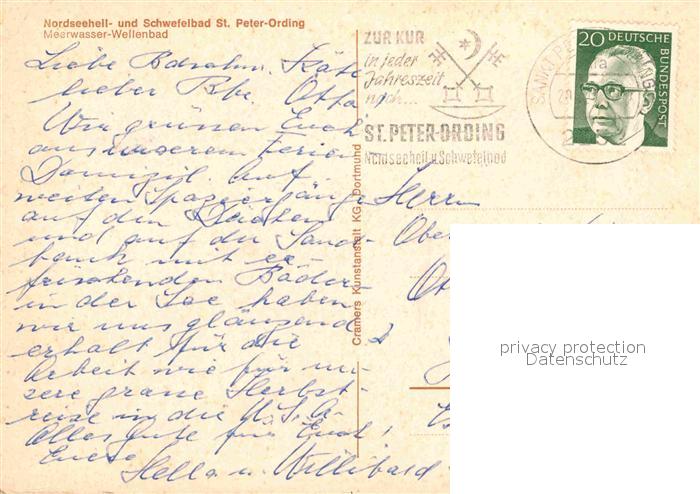 Nordseeheil- und Schwefelbad St. Peter-Ording
Meerwasser-Wellenbad
Liebe Käte
lieber Otto
Wir grüssen Euch
aus unserem Ferien
Domizil. Auf
weiten Spaziergängen
auf den Deichen
und auf der Sand-
bank mit er-
frischenden Bädern
in der See haben
wir uns glänzend
erholt für die
Arbeit wie für un-
sere grosse Herbst-
reise in die U.S.A.
Alles Gute für Euch!
Eure
Hella u. Willibald
Cramers Kunstanstalt KG, Dortmund
ZUR KUR
in jeder
Jahreszeit
nach...
ST. PETER-ORDING
Nordseeheil u. Schwefelbad
20 DEUTSCHE
BUNDESPOST
SANKT PE
20
2
Herrn
Obe
privacy protection
Datenschutz